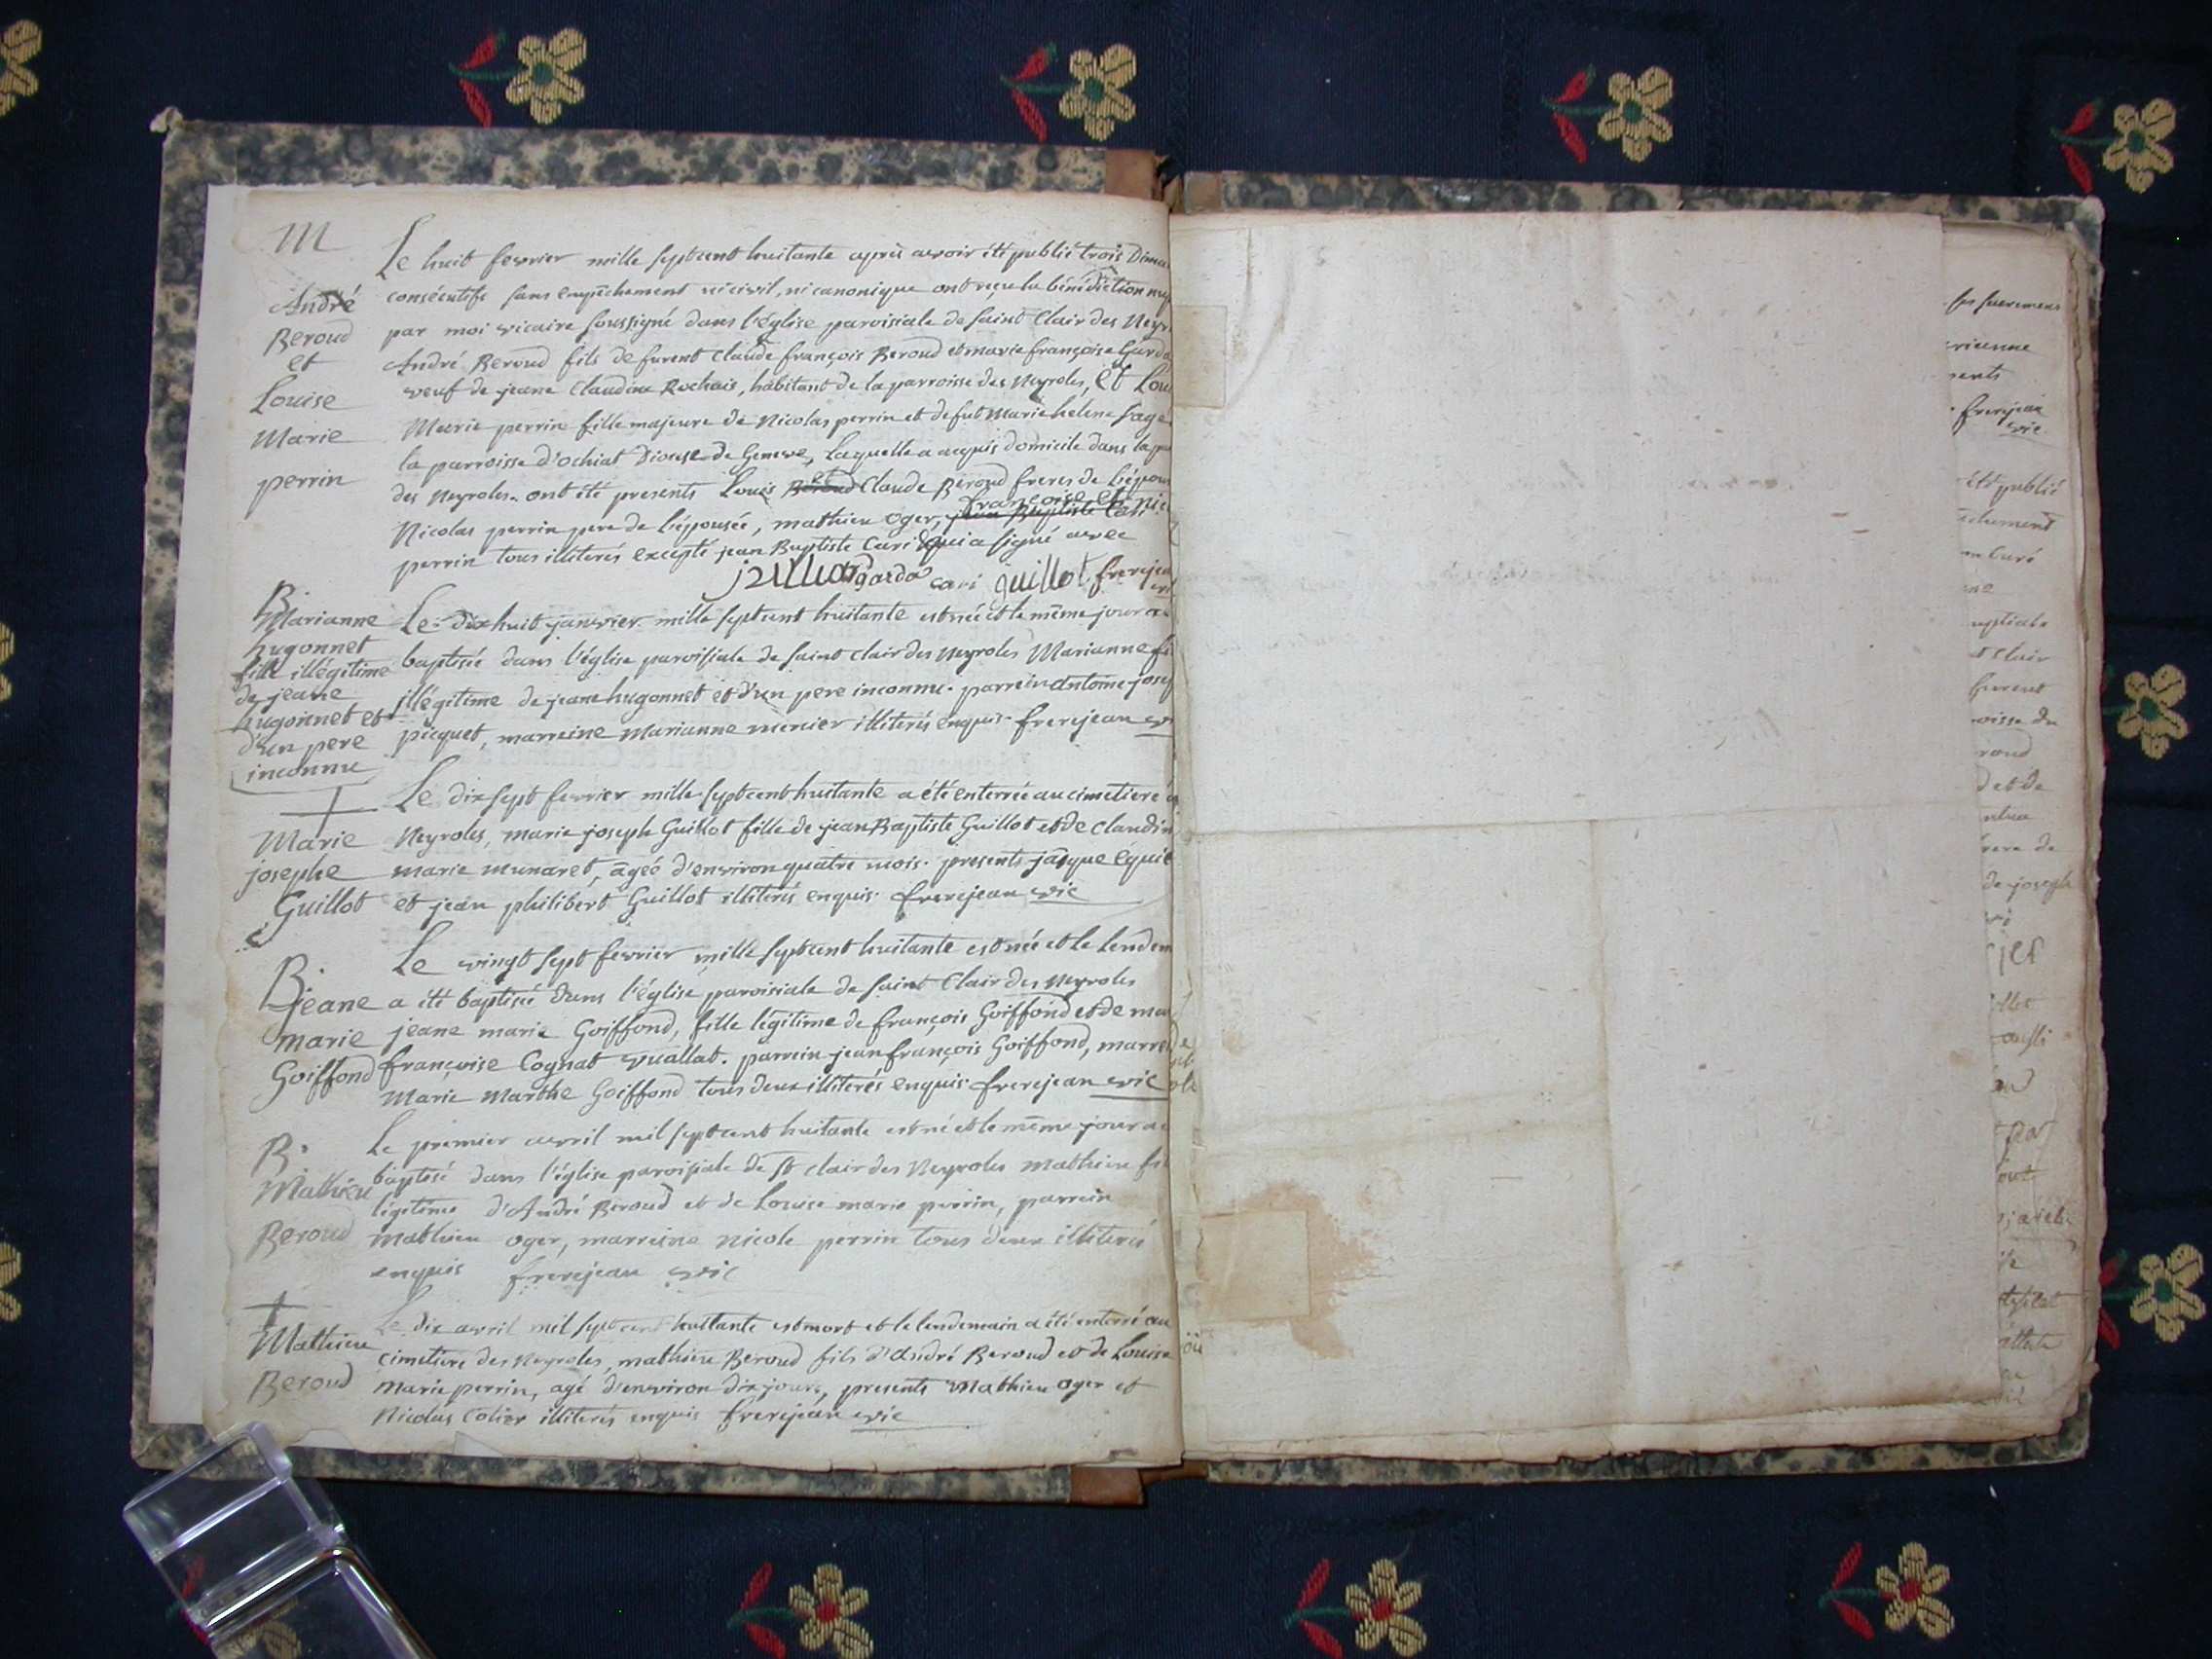 M
André
Beroud
et
Louise
Marie
perrin
Le huit fevrier mille septcent huitante après avoir été publié trois Dima
consécutifs sans empêchement ni civil, ni canonique ont reçu la bénédiction nup
par moi vicaire soussigné dans l'église paroisiale de saint Clair des Neyr
André Beroud fils de furent Claude françois Beroud et marie françoise Garda
veuf de jeane Claudine Rochais, habitant de la parroisse des Neyroles, et Lou
Marie perrin fille majeure de Nicolas perrin et de fut Marie helene sage
la parroisse d'ochiat Diocese de Geneve, Laquelle a acquis domicile dans la pa
des Neyroles. ont été presents Louis et Claude Beroud freres de l'épou
françoise et nic
Nicolas perrin pere de l'épousée, mathieu oger, jean Baptiste Cari
perrin tous illiterés excepté jean Baptiste Cari qui a signé avec
garda cari guillot frerejea
B.
Marianne
hugonnet
fille illégitime
de jeane
hugonnet et
d'un pere
inconnu
Le dix huit janvier mille septcent huitante est née et le même jour a
baptisée dans l'église paroisiale de saint Clair des Neyroles Marianne fi
illégitime de jeane hugonnet et d'un pere inconnu. parrein Antoine josep
picquet, marreine Marianne mercier illiterés enquis. frerejean v
†
Marie
josephe
Guillot
Le dix sept fevrier mille septcent huitante a été enterrée au cimetiere d
Neyroles, marie joseph Guillot fille de jean Baptiste Guillot et de Claudin
marie munaret, âgée d'environ quatre mois. presents jâque Equie
et jean philibert Guillot illiterés enquis. frerejean vic
B.
jeane
marie
Goiffond
Le vingt sept fevrier mille septcent huitante est née et le lendem
a été baptisée dans l'église paroisiale de saint Clair des Neyroles
jeane marie Goiffond, fille légitime de françois Goiffond et de ma
françoise Cognat vuallat. parrein jean françois Goiffond, marrei
Marie Marthe Goiffond tous deux illiterés enquis. frerejean vic
B.
Mathieu
Beroud
Le premier avril mil septcent huitante est né et le même jour a
baptisé dans l'église paroisiale de st clair des Neyroles mathieu fi
légitime d'André Beroud et de Louise marie perrin, parrein
mathieu oger, marreine nicole perrin tous deux illiterés
enquis frerejean vic
†
Mathieu
Beroud
Le dix avril mil septcent huitante est mort et le lendemain a été enterré au
cimetiere des Neyroles, mathieu Beroud fils d'André Beroud et de Louise
Marie perrin, agé d'environ dix jours, presents Mathieu oger et
Nicolas Colier illiterés enquis frerejean vic
frerejean
vic
été publié
Curé
nuptiale
Clair
furent
roisse de
roud
et de
frere de
de joseph
aussi
par